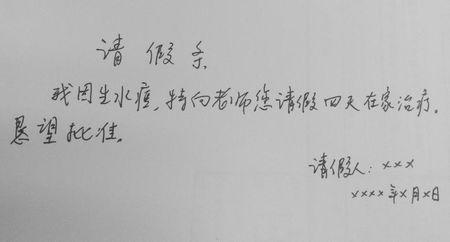 请假条
我因生水痘，特向老师您请假四天在家治疗。
恳望批准。
请假人：×××
××××年×月×日